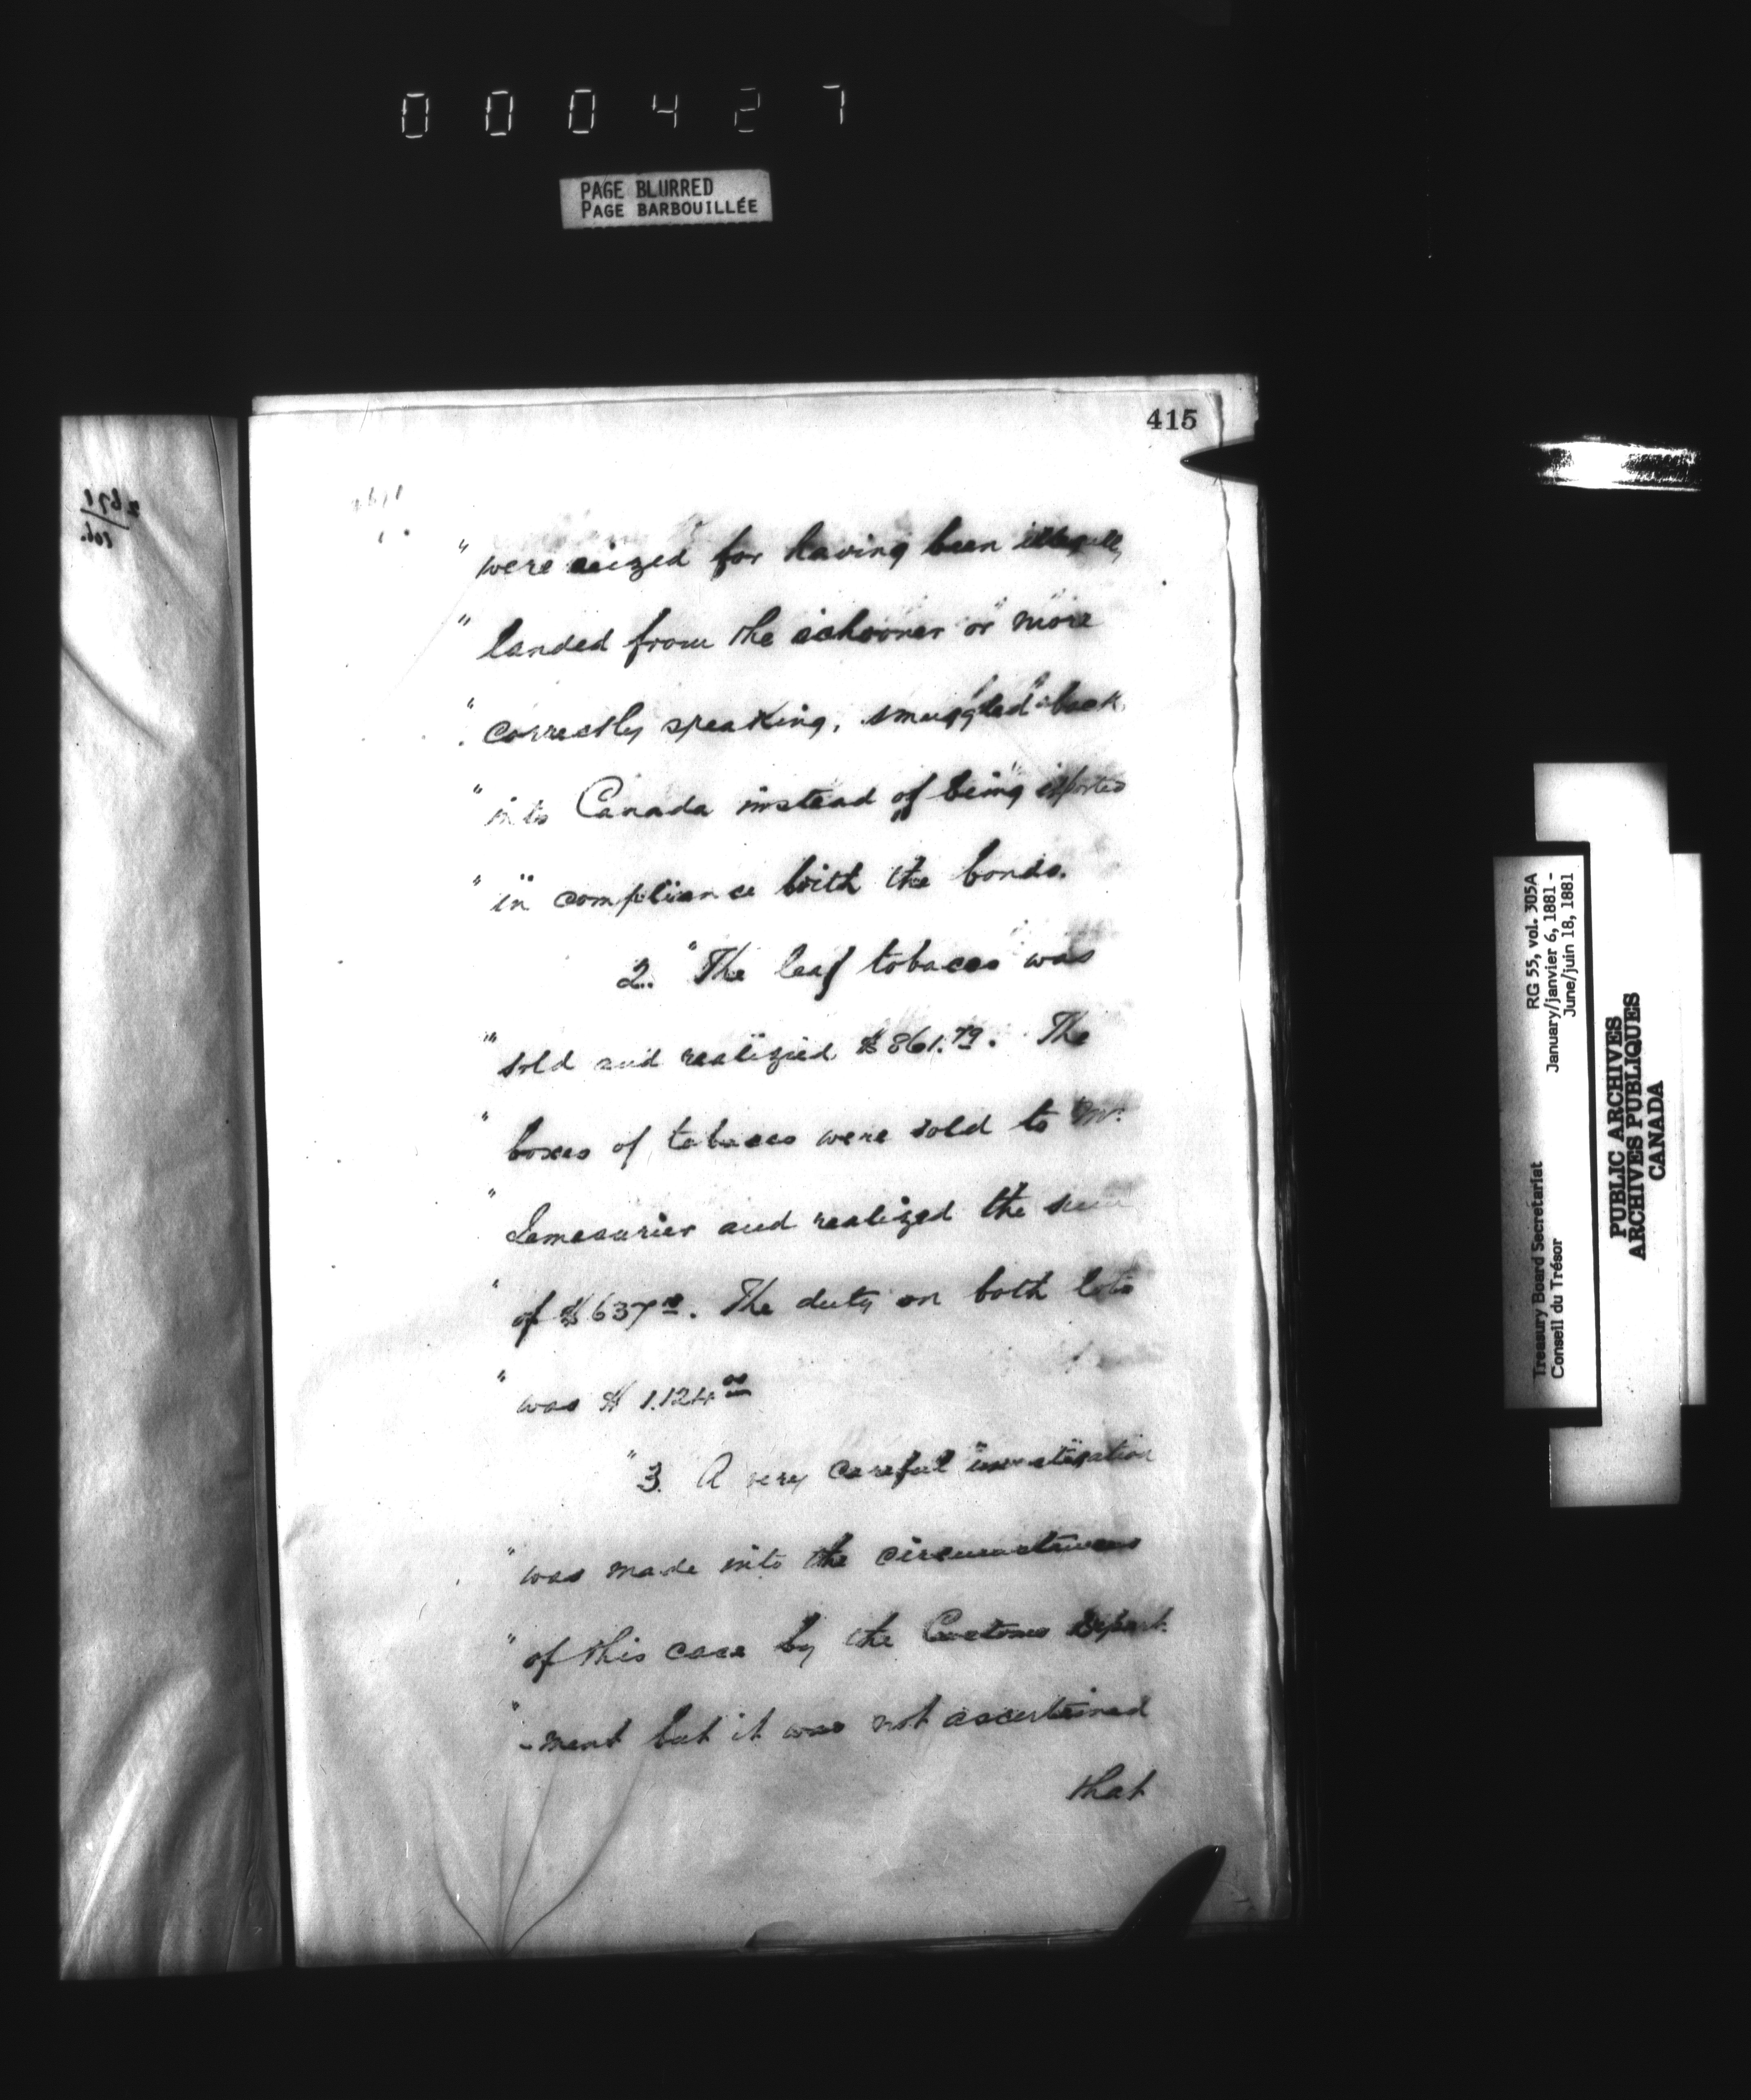 000427
PAGE BLURRED
PAGE BARBOUILLÉE
415
" were seized for having been illegally
" landed from the schooner or more
" correctly speaking, smuggled back
" into Canada instead of being exported
" in compliance with the bonds.
2. "The leaf tobacco was
" sold and realized $861.79. The
" boxes of tobacco were sold to Mr.
" Lemesurier and realized the sum
" of $637. The duty on both lots
" was $1.124 00
"3. A very careful investigation
" was made into the circumstances
" of this case by the Customs Depart
" -ment but it was not ascertained
that
RG 55, vol. 305A
January/janvier 6, 1881 -
June/juin 18, 1881
Treasury Board Secretariat
Conseil du Trésor
PUBLIC ARCHIVES
ARCHIVES PUBLIQUES
CANADA